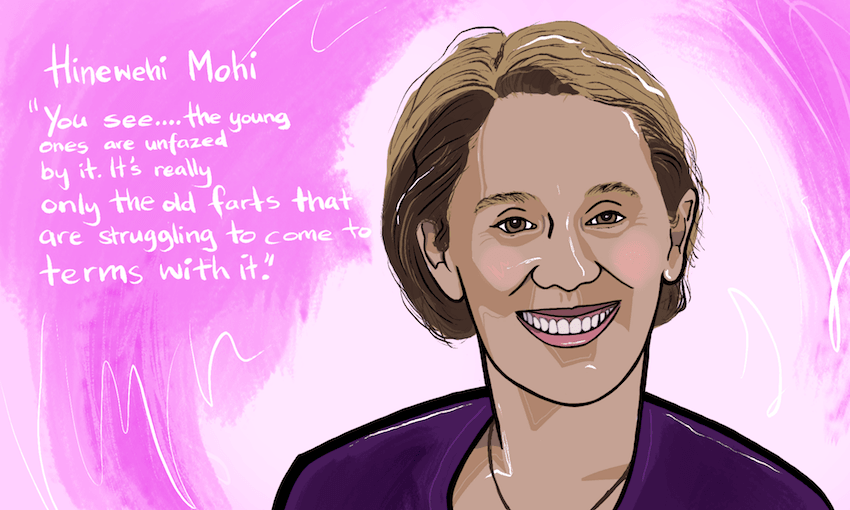 Hinewehi Mohi
"You see....the young
ones are unfazed
by it. It's really
only the old farts that
are struggling to come to
terms with it."